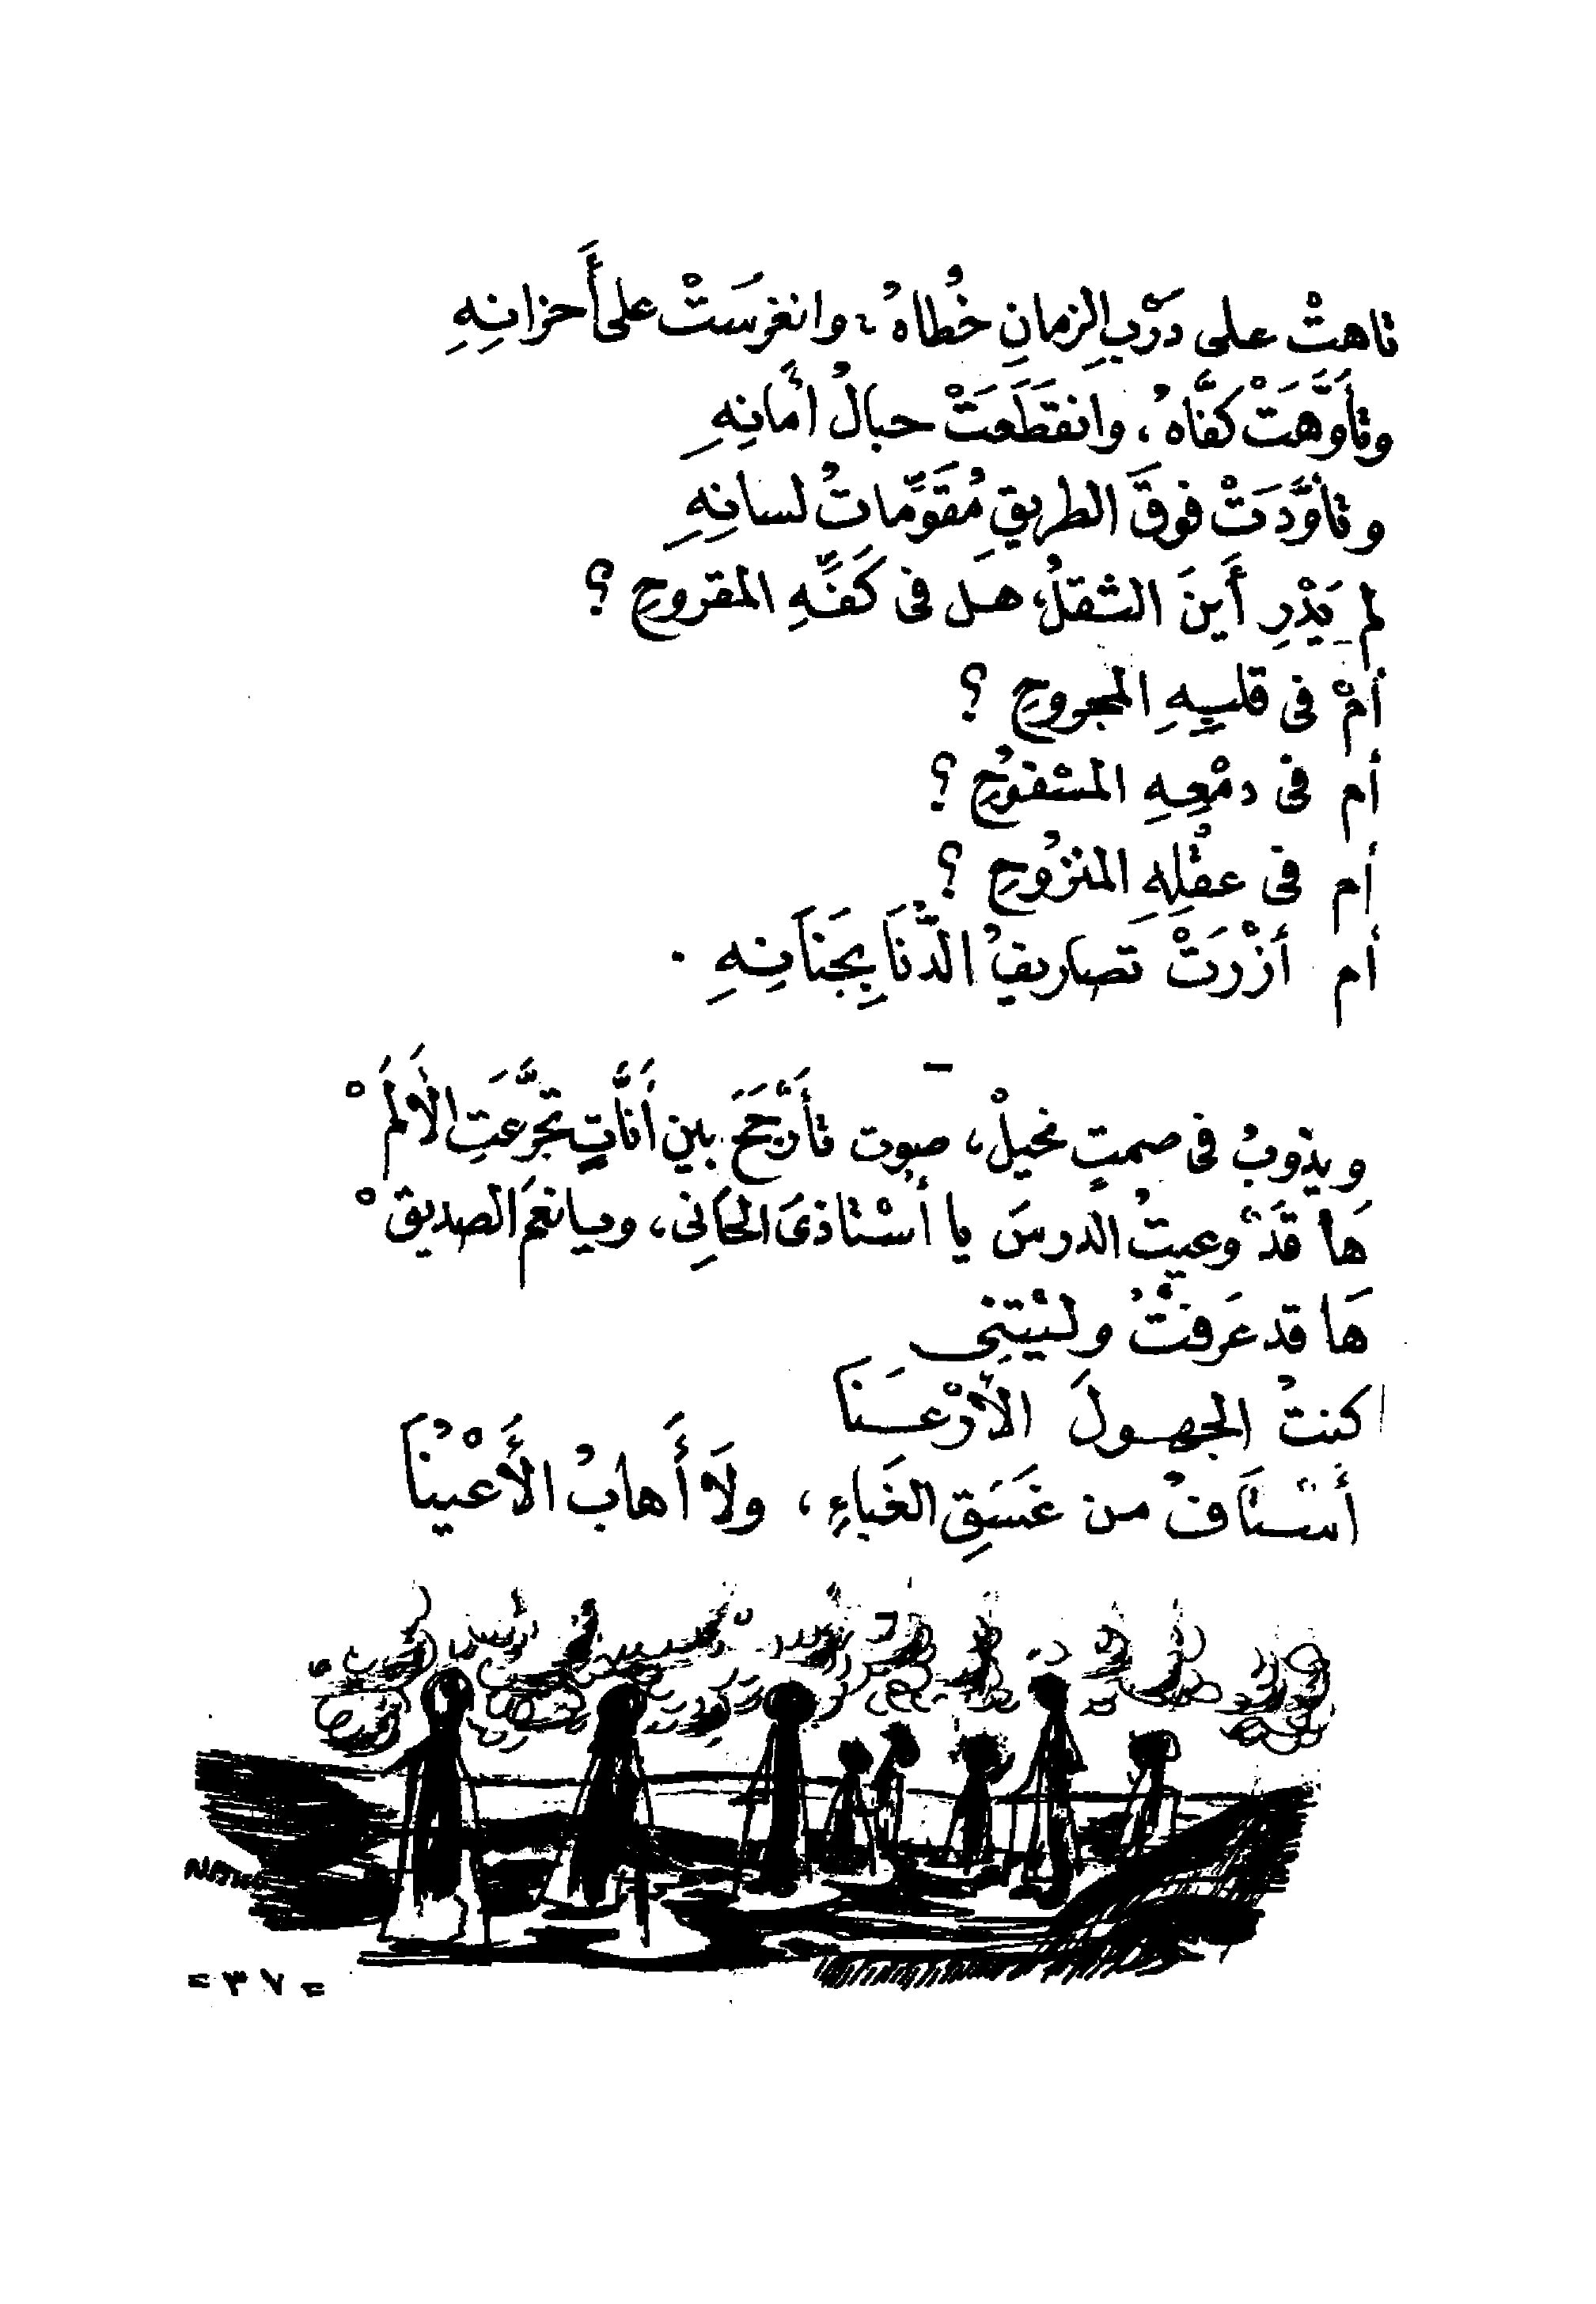 تاهتْ على دَرْبِ الزمانِ خُطاهُ، وانغرسَتْ على أَحزانِهِ
وتأَوَّهَتْ كفَّاهُ، وانقَطَعَتْ حبالُ أمَانِهِ
وتأوَّدَتْ فوقَ الطريقِ مُقَوِّماتُ لسانِهِ
لم يَدْرِ أَينَ الثقلُ، هل فى كَفِّهِ المقروحِ ؟
أمْ فى قلبِهِ المجروحِ ؟
أم فى دمْعِهِ المسْفوُحِ ؟
أم فى عقْلِهِ المنزُوحِ ؟
أم أزْرَتْ تصاريفُ الدُّنَا بِجَنَانِهِ .
ويذوبُ فى صمتٍ نحيلْ، صوت تأَرْجَحَ بين أَنَّاتٍ تجَرَّعَتِ الأَلَمْ
هَا قَدْ وعيتُ الدرسَ يا أُسْتاذىَ الحَانِى، ويا نعمَ الصديقْ
هَا قد عَرفتُ وليْتَنِى
كنتُ الجهولَ الأرْعَنَا
أسْتَافُ من غَسَقِ الغَباءِ، ولَا أَهابُ الأَعْيُنَا
= ٣٧ =